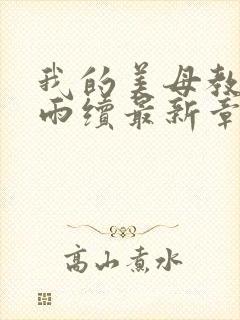 我的美母教
雨续最新章
高山煮水